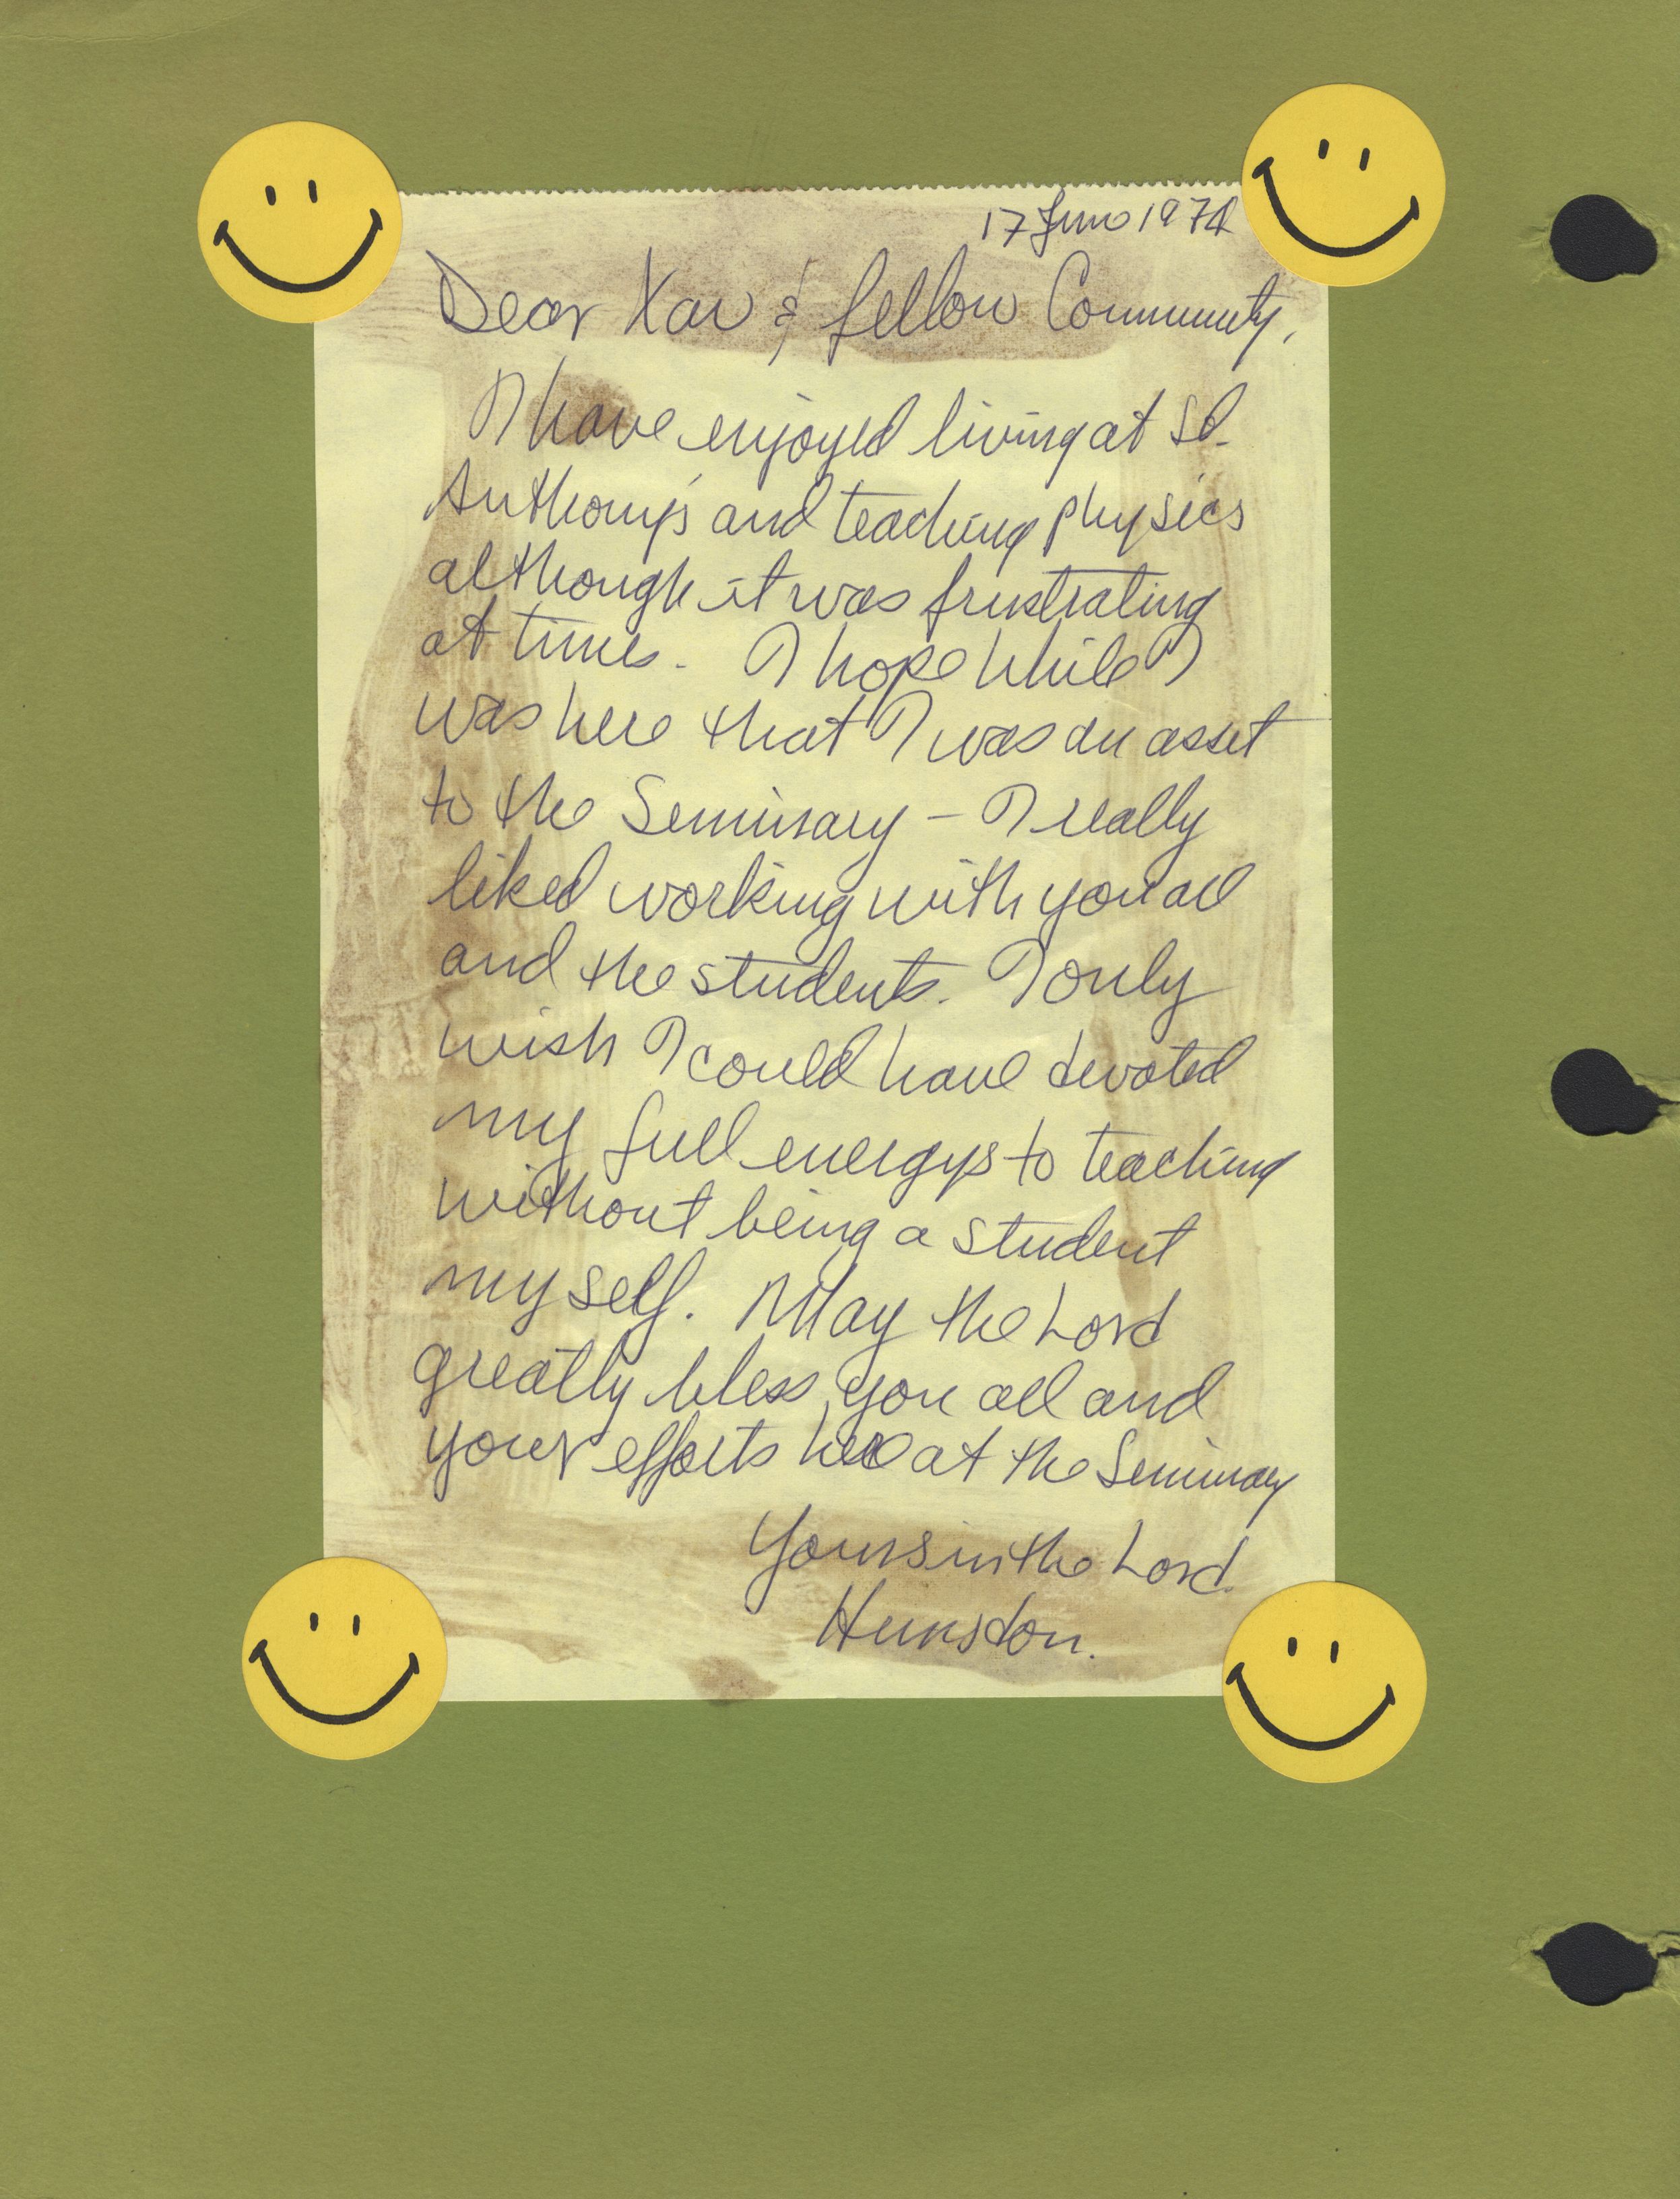 17 June 1974
Dear Xav & fellow Community,
I have enjoyed living at St.
Anthony's and teaching physics
although it was frustrating
at times. I hope while I
was here that I was an asset
to the Seminary – I really
liked working with you all
and the students. I only
wish I could have devoted
my full energys to teaching
without being a student
myself. May the Lord
greatly bless you all and
your efforts here at the Seminary
Yours in the Lord.